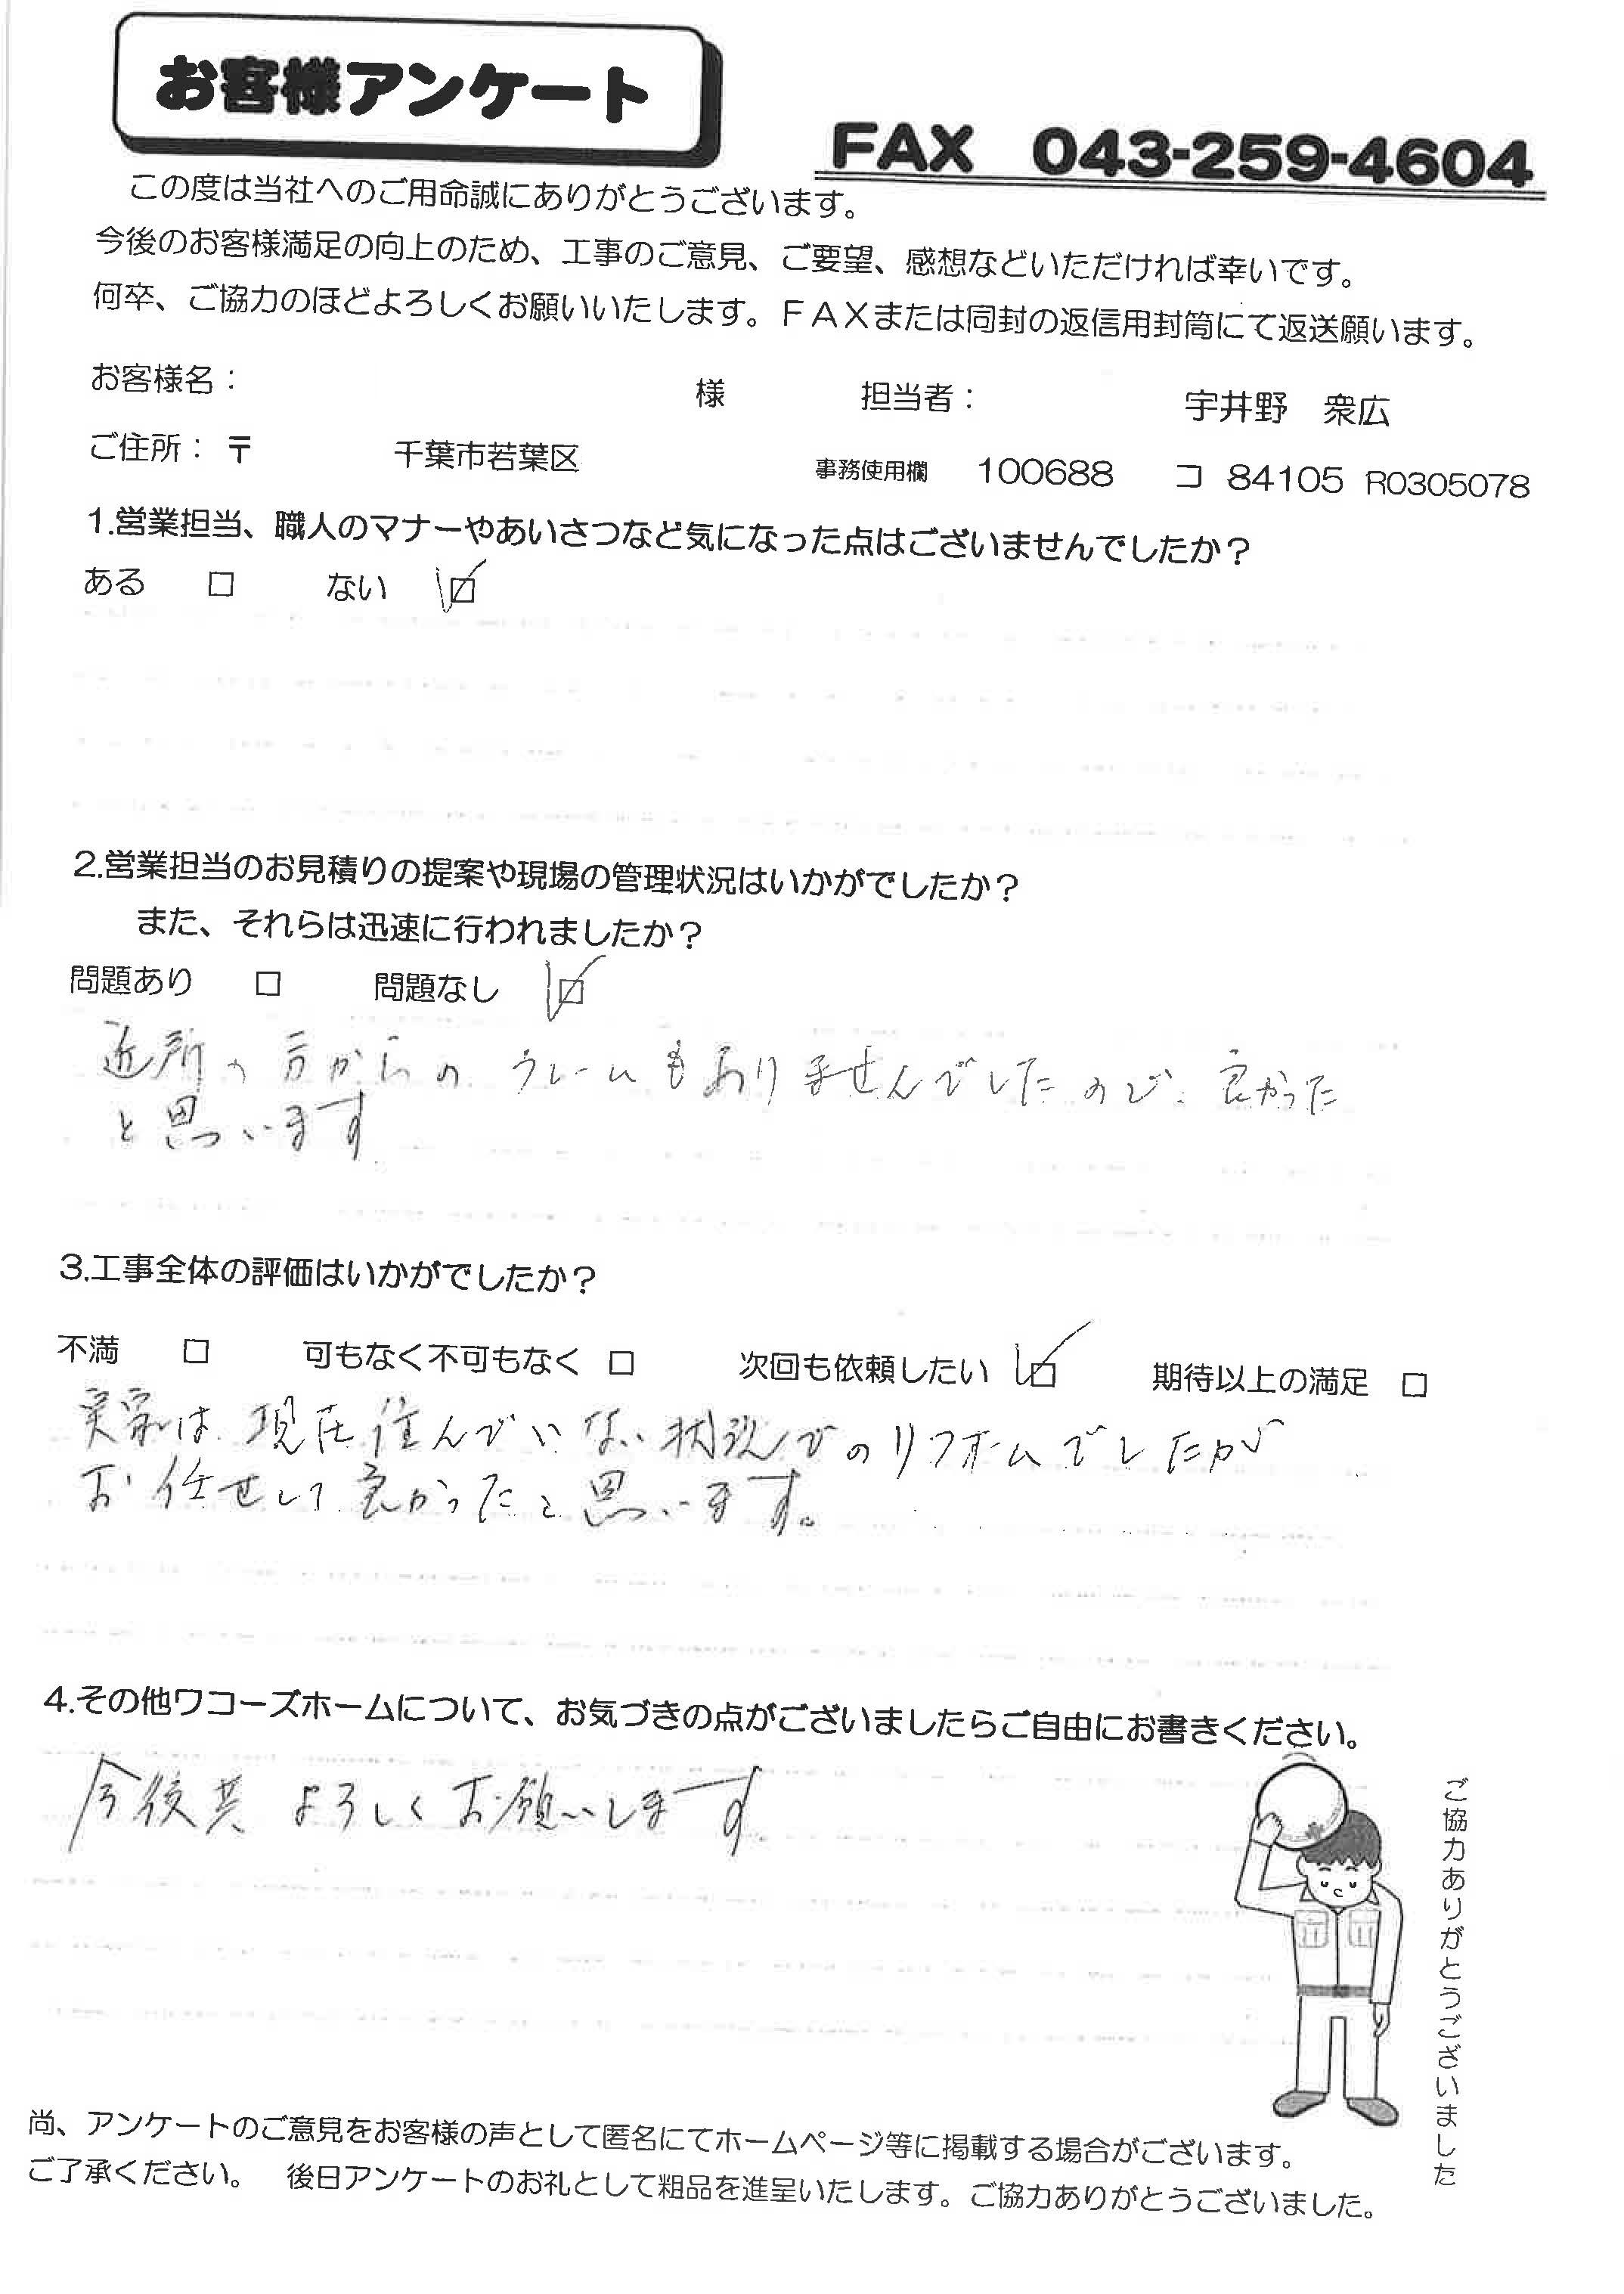 お客様アンケート
FAX 043-259-4604
この度は当社へのご用命誠にありがとうございます。
今後のお客様満足の向上のため、工事のご意見、ご要望、感想などいただければ幸いです。
何卒、ご協力のほどよろしくお願いいたします。FAXまたは同封の返信用封筒にて返送願います。
お客様名： 様 担当者： 宇井野 衆広
ご住所：〒 千葉市若葉区 事務使用欄 100688 コ 84105 R0305078
1.営業担当、職人のマナーやあいさつなど気になった点はございませんでしたか？
ある □ ない ☑
2.営業担当のお見積りの提案や現場の管理状況はいかがでしたか？
また、それらは迅速に行われましたか？
問題あり □ 問題なし ☑
近所の方からのクレームもありませんでしたので、良かった
と思います
3.工事全体の評価はいかがでしたか？
不満 □ 可もなく不可もなく □ 次回も依頼したい ☑ 期待以上の満足 □
実家は現在住んでいない状況でのリフォームでしたが
お任せして良かったと思います。
4.その他ワコーズホームについて、お気づきの点がございましたらご自由にお書きください。
今後共よろしくお願いします
ご協力ありがとうございました
尚、アンケートのご意見をお客様の声として匿名にてホームページ等に掲載する場合がございます。
ご了承ください。 後日アンケートのお礼として粗品を進呈いたします。ご協力ありがとうございました。